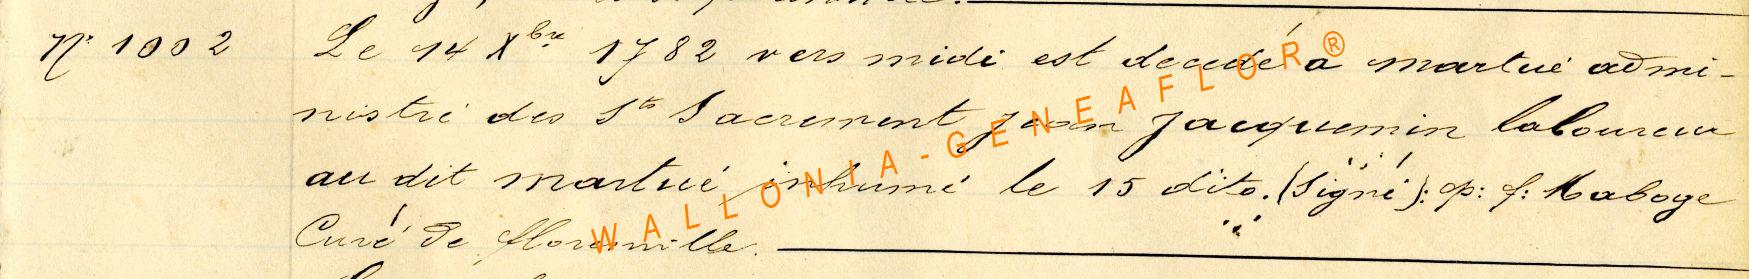 N° 1002
Le 14 Xbre 1782 vers midi est decedé a martué admi-
nistré des Sts Sacrement jean jacquemin laboureur
au dit martué inhumé le 15 dito. (Signé): p: f: Maboge
Curé de florenville.
WALLONIA-GENEAFLOR®